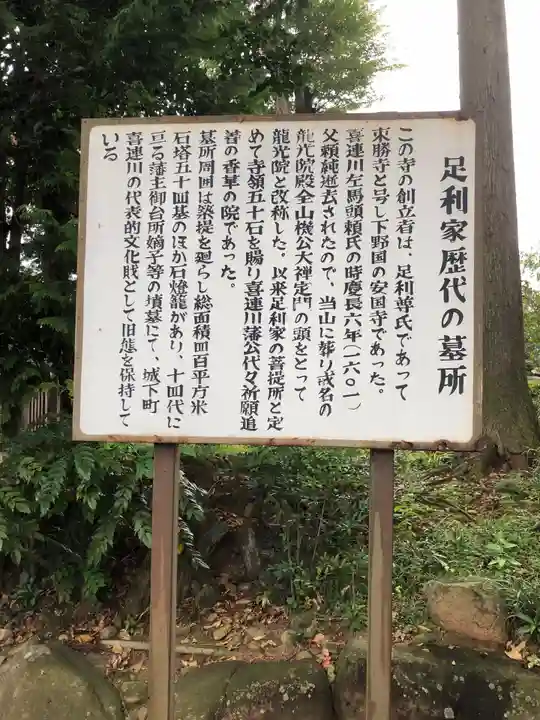 足利家歴代の墓所
この寺の創立者は、足利尊氏であって
東勝寺と号し下野国の安国寺であった。
喜連川左馬頭頼氏の時慶長六年(一六〇一)
父頼純逝去されたので、当山に葬り戒名の
龍光院殿全山機公大禅定門の頭をとって
龍光院と改称した。以来足利家の菩提所と定
めて寺領五十石を賜り喜連川藩公代々祈願追
善の香華の院であった。
墓所周囲は築堤を廻らし総面積四百平方米
石塔五十四基のほか石燈籠があり、十四代に
亘る藩主御台所嫡子等の墳墓にて、城下町
喜連川の代表的文化財として旧態を保持して
いる